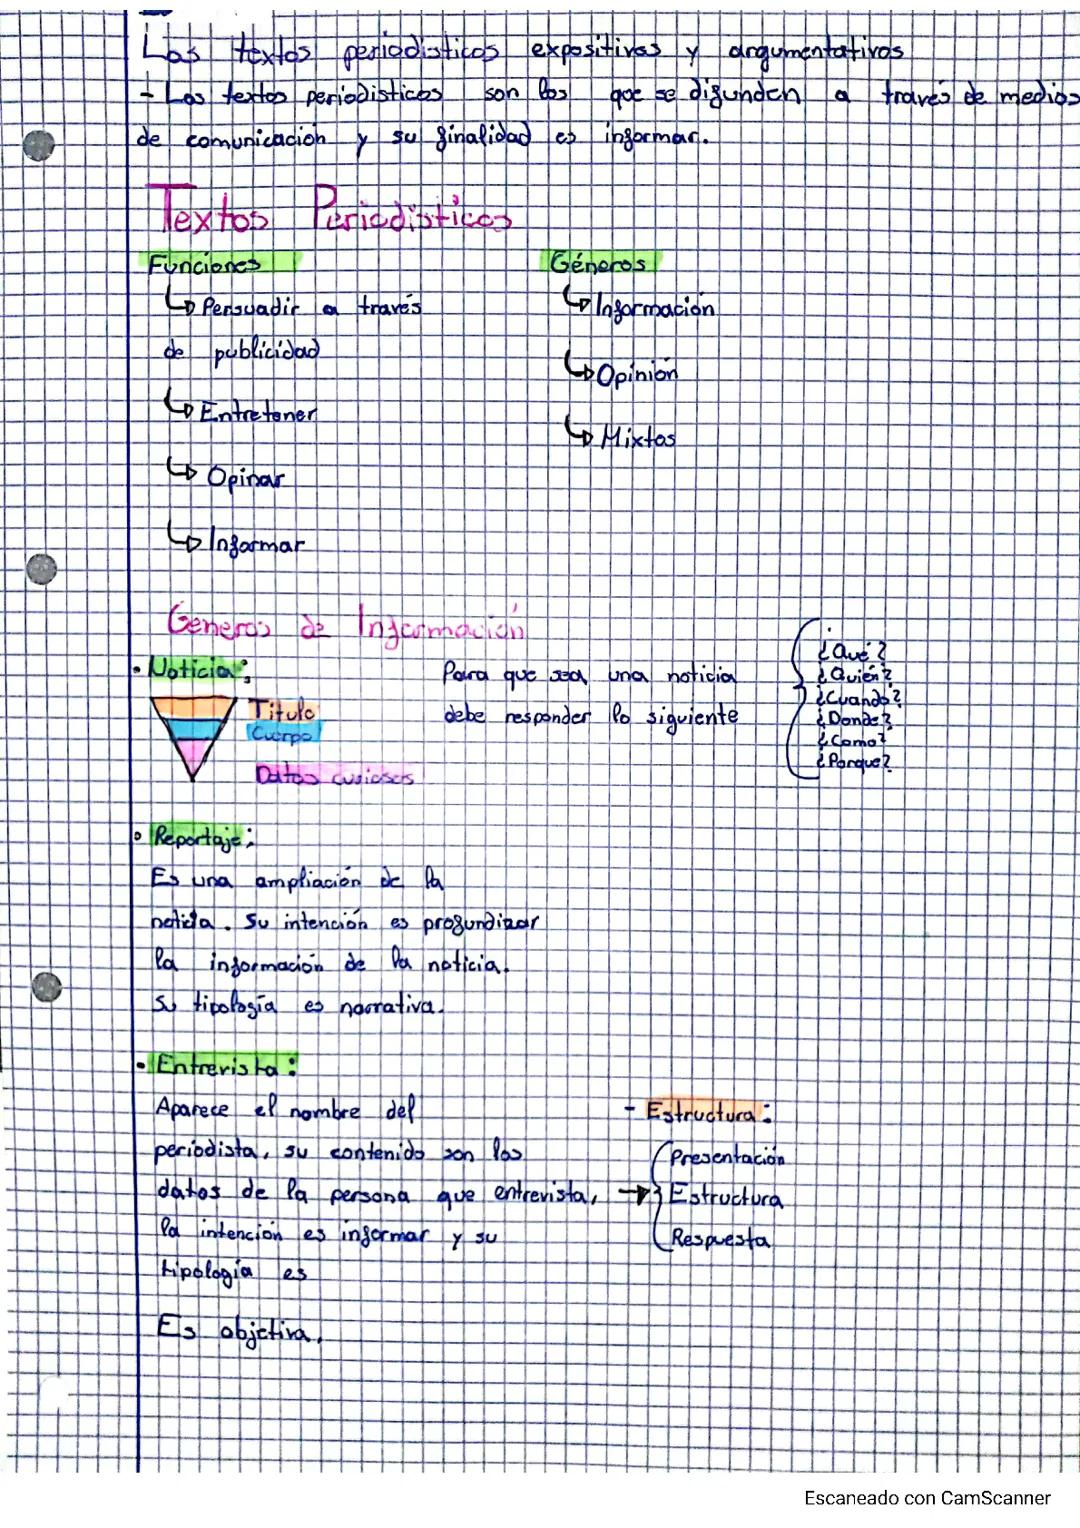 Los textos periodisticos expositivos y argumentativos
- Los textos periodisticos son los que se difunden a través de medios
de comunicación y su finalidad es informar.
Textos Periodisticos
Funciones
Persuadir a través
de publicidad
Entretener
Opinar
Informar
Géneros
Información
Opinión
Mixtos
Generos de Información
• Noticia:
Titulo
Cuerpo
Datos curiosos
Para que sea una noticia
debe responder lo siguiente
¿Qué?
¿Quién?
¿Cuando?
¿Donde?
¿Como?
¿Porque?
• Reportaje:
Es una ampliación de la
noticia. Su intención es profundizar
la información de la noticia.
Su tipología es narrativa.
• Entrevista:
Aparece el nombre del
periodista, su contenido son los
datos de la persona que entrevista,
la intención es informar y su
tipología es
Es objetiva.
- Estructura:
Presentación
Estructura
Respuesta
Escaneado con CamScanner